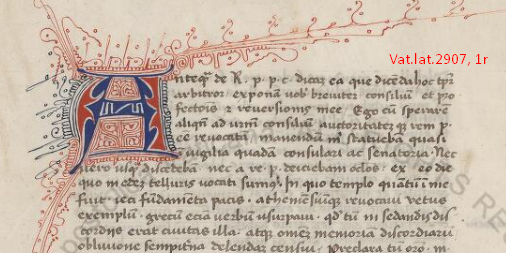 Vat.lat.2907, 1r
Anteq̃ de R. p. p. c. dicaʒ ea que dicēda hoc tp̄r
arbitror. exponā vob' breviter consiliū et pro
fectois ⁊ reversionis mee. Ego cū sperare
aliqn̄ ad urm̄ consiliū auctoritateʒ qʒ rem p.
ce revocatū manendū m̄ statuebā quasi
ī vigilia quadā consulari ac senatoria. Nec
vero usq̃ discedebā nec a re. p. deiciebam oclos. ex eo die
quo in edeʒ telluris vocati sumus. In quo templo quātū ī me
fuit ieci fūdamēta pacis. atheniēsiūqʒ revocavi vetus
exemplū. grecū eciā verbū usurpavi. q° tū in sedandis dis
cordiis erat civitas illa. atqʒ omēʒ memoriā discordiarū
oblivione sempit̄na delendaʒ censui. Preclara tū oro. m.